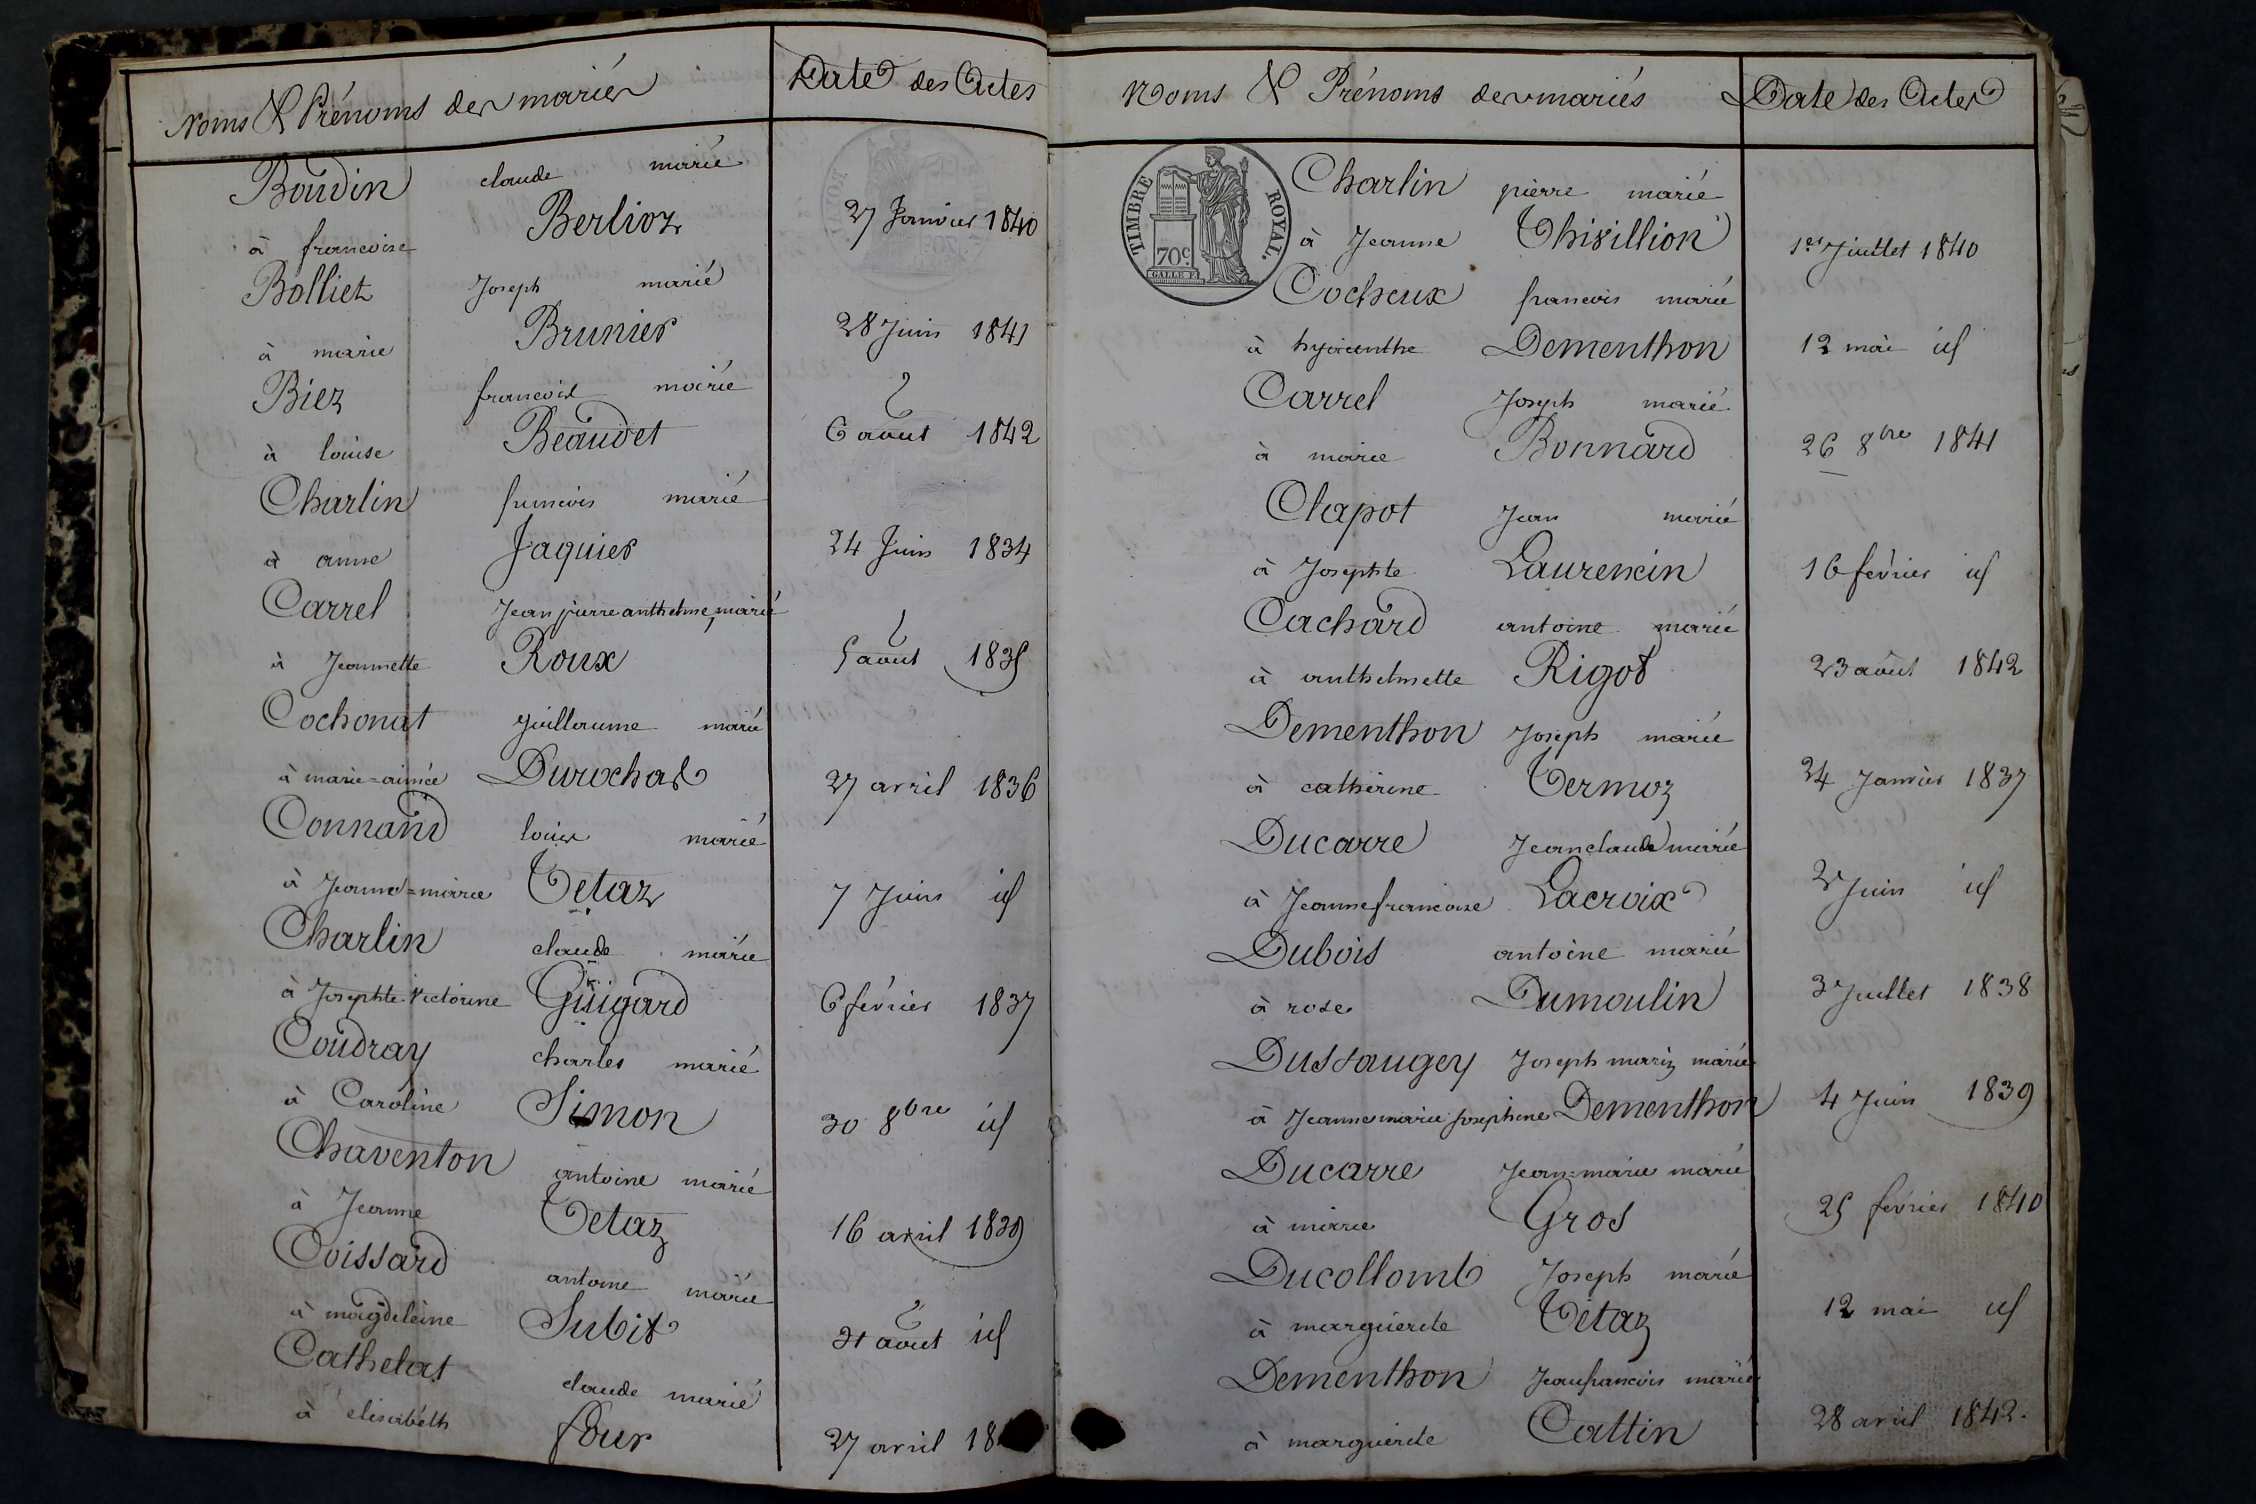 Noms & Prénoms des mariés
Date des Actes
Boudin claude marié
à francoise Berlioz 27 Janvier 1840
Bolliet Joseph marié
à marie Brunier 28 Juin 1841
Biez francois marié
à louise Beaudet 6 aout 1842
Charlin francois marié
à anne Jaquier 24 Juin 1834
Carrel Jean pierre anthelme, marié
à Jeannette Roux 5 aout 1835
Cochonat guillaume marié
à marie=aimée Durochat 27 avril 1836
Connand louis marié
à Jeanne=marie Tetaz 7 Juin id
Charlin claude marié
à Josephte Victorine Guigard 6 février 1837
Coudray charles marié
à Caroline Simon 30 8bre id
Chaventon antoine marié
à Jeanne Tetaz 16 avril 1839
Coissard antoine marié
à magdeleine Subit 21 aout id
Cathelat claude marié
à elisabeth four 27 avril 18
Noms & Prénoms des mariés
Date des Actes
TIMBRE ROYAL.
70c.
Charlin pierre marié
à Jeanne Thivillion 1er Juillet 1840
Cocheux francois marié
à hyacinthe Dementhon 12 mai id
Carrel Joseph marié
à marie Bonnard 26 8bre 1841
Chapot Jean marié
à Josephte Laurencin 16 février id
Cachard antoine marié
à anthelmette Rigot 23 août 1842
Dementhon Joseph marié
à catherine Termoz 24 Janvier 1837
Ducarre Jean claude marié
à Jeanne francoise Lacroix 2 Juin id
Dubois antoine marié
à rose Dumoulin 3 Juillet 1838
Dussaugey Joseph marie marié
à Jeanne marie Josephine Dementhon 4 Juin 1839
Ducarre Jean=marie marié
à marie Gros 25 février 1840
Ducollomb Joseph marié
à marguerite Tetaz 12 mai id
Dementhon Jean francois marié
à marguerite Cattin 28 avril 1842.